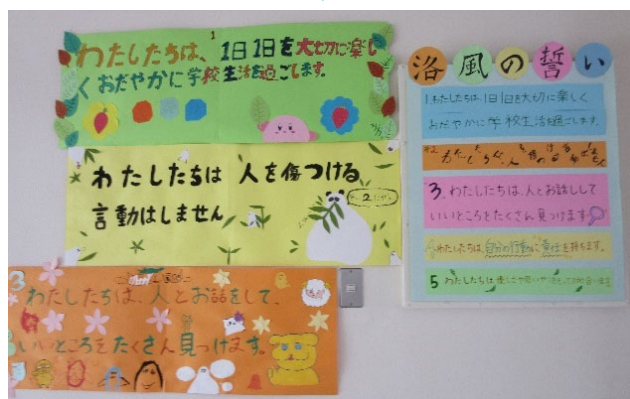 1
わたしたちは、1日1日を大切に楽し
くおだやかに学校生活を過ごします。
わたしたちは 人を傷つける
言動はしません
2
3
わたしたちは、人とお話をして、
いいところをたくさん見つけます。
洛風の誓い
1 わたしたちは、1日1日を大切に楽しく
おだやかに学校生活を過ごします。
3. わたしたちは、人とお話しして
いいところをたくさん見つけます
わたしたちは、自分の行動に責任を持ちます。
5 わたしたちは